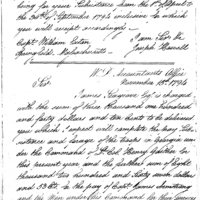 being for your Subsistence from the 1st August to
the 30th of September 1794 inclusive for which
you will accept accordingly.
Capt William Eaton I am Sir &c
Springfield, Massachusetts Joseph Howell
W. D. Accountants Office
November 18th 1794
Sir,
James Seagrove Esqr is charged with
sum of three thousand one hundred
and forty dollars and ten cents to be delivered
you which I expect will complete the pay Sub-
sistence and forage of the troops in Georgia under
the Command of Col Henry Gaither for
the present year and the further sum of Eight
thousand two hundred and Sixty seven dollars
and 33 the pay of Capt James Armstrong
and the Men under his Command for their Services